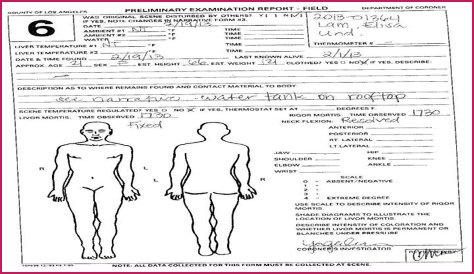 COUNTY OF LOS ANGELES PRELIMINARY EXAMINATION REPORT - FIELD DEPARTMENT OF CORONER
6
WAS ORIGINAL SCENE DISTURBED BY OTHERS? Y
IF YES, NOTE CHANGES IN NARRATIVE FORM #3.
2013-01364
Lam, Elisa
Und.
DATE
AMBIENT #1 NT TIME
AMBIENT #2 TIME
WATER TIME
LIVER TEMPERATURE #1 NT TIME THERMOMETER #
LIVER TEMPERATURE #2 TIME
DATE 2/19/13 LAST KNOWN ALIVE 2/1/13
APPROX AGE 21 SEX EST. HEIGHT 66 EST. WEIGHT CLOTHED? YES NO IF YES, DESCRIBE
DESCRIPTION AS TO WHERE REMAINS FOUND AND CONTACT MATERIAL TO BODY
see narrative - water tank on rooftop
SCENE TEMPERATURE REGULATED? YES NO IF YES, THERMOSTAT SET AT DEGREES F.
LIVOR MORTIS: TIME OBSERVED 1730 RIGOR MORTIS: TIME OBSERVED 1730
Fixed
NECK FLEXION: Resolved
ANTERIOR
POSTERIOR
RT. LATERAL
LT. LATERAL
R L L R
JAW HIP
SHOULDER KNEE
ELBOW ANKLE
WRIST
SCALE
0 - ABSENT/NEGATIVE
1
2
3
4 - EXTREME DEGREE
USE SCALE TO DESCRIBE INTENSITY OF RIGOR MORTIS.
SHADE DIAGRAMS TO ILLUSTRATE THE LOCATION OF LIVOR MORTIS.
DESCRIBE INTENSITY OF COLORATION AND WHETHER LIVOR MORTIS IS PERMANENT OR BLANCHES UNDER PRESSURE
CORONER'S INVESTIGATOR
NOTE: ALL DATA COLLECTED FOR THIS FORM MUST BE COLLECTED AT SCENE.